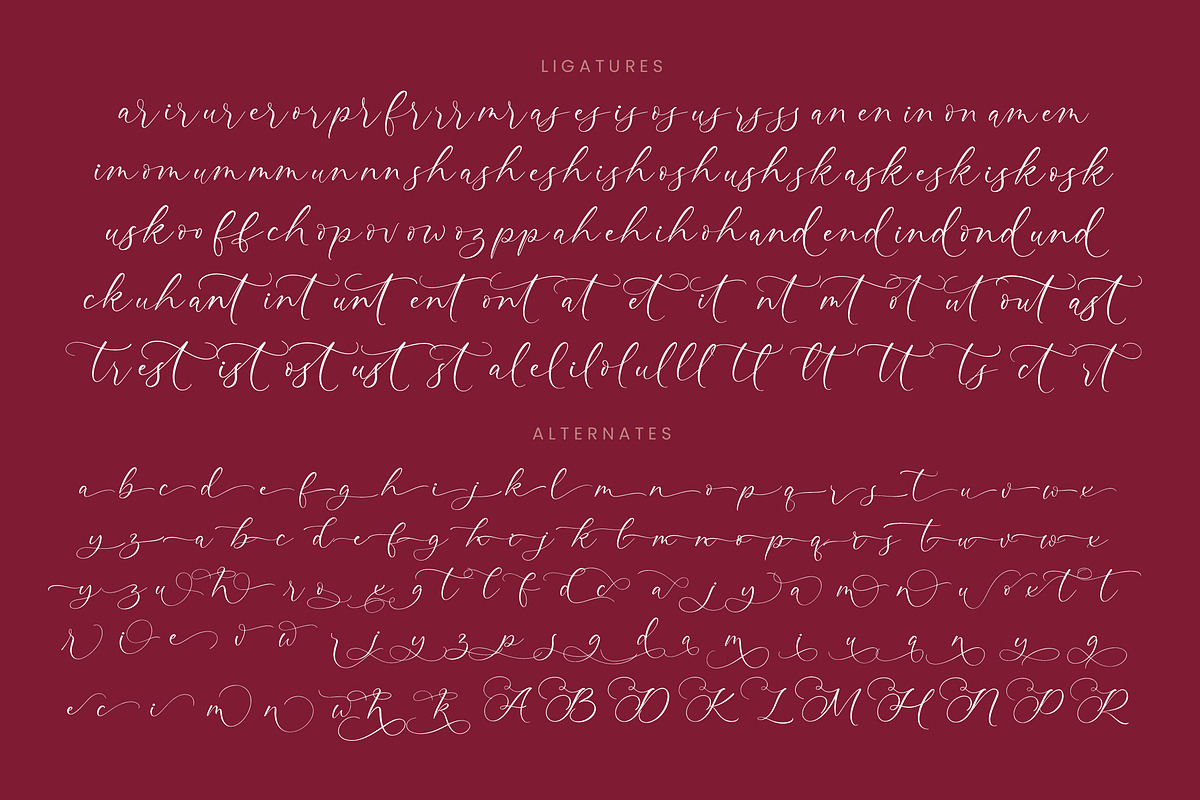 LIGATURES
ar ir ur er or pr fr rr mr as es is os us rs ss an en in on am em
im om um mm un nn sh ash esh ish osh ush sk ask esk isk osk
usk oo ff ch op ov ow oz pp ah eh ih oh and end ind ond und
ck uh ant int unt ent ont at et it nt mt ot ut out ast
tr est ist ost ust st al el il ol ul ll tl lt tt ts ct rt
ALTERNATES
a b c d e f g h i j k l m n o p q r s t u v w x
y z a b c d e f g h i j k l m n o p q r s t u v w x
y z u h r o x g t l f d c a j y a m n u o x t t
r i e v w r j y z p s g d a m i u q n y g
e c i m n w h k A B D K L M H N P R